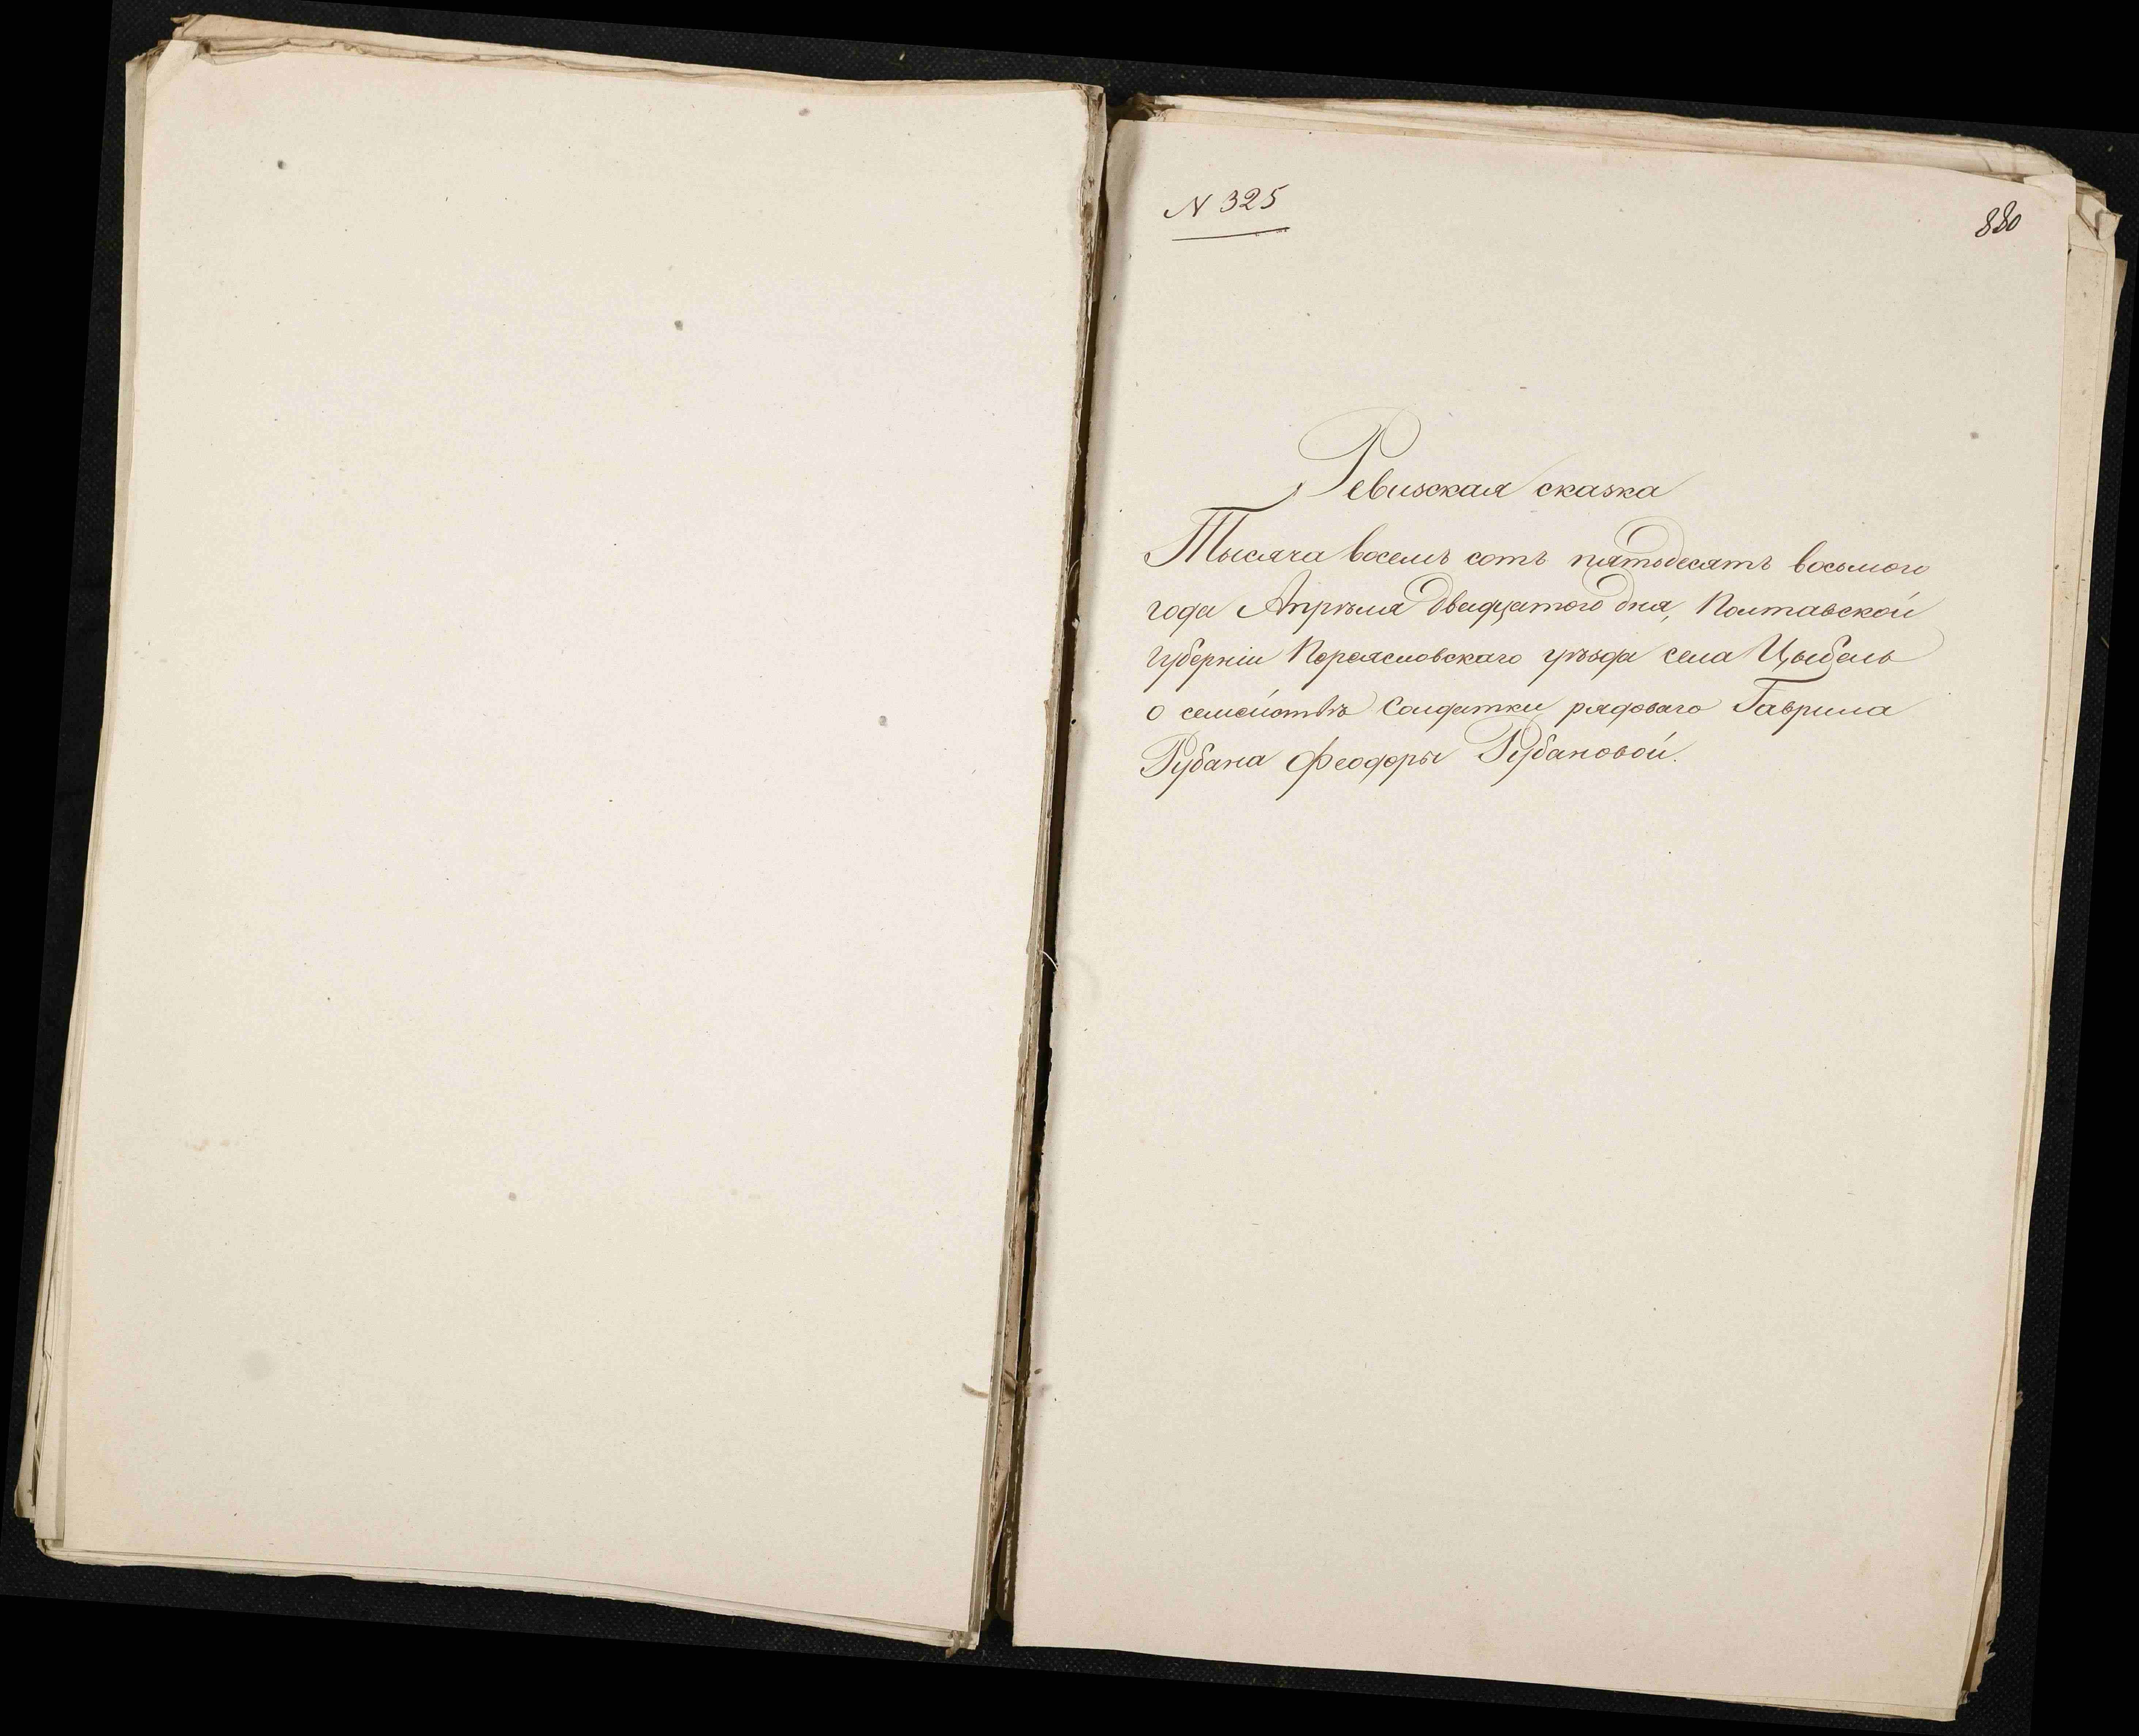 N 325
880
Ревизская сказка
Тысяча восемь сотъ пятьдесятъ восьмого
года Апрѣля двадцатого дня, Полтавской
губерніи Переясловскаго уѣзда села Цыбель
о семействѣ Солдатки рядоваго Гаврила
Рубана Феодоры Рубановой.